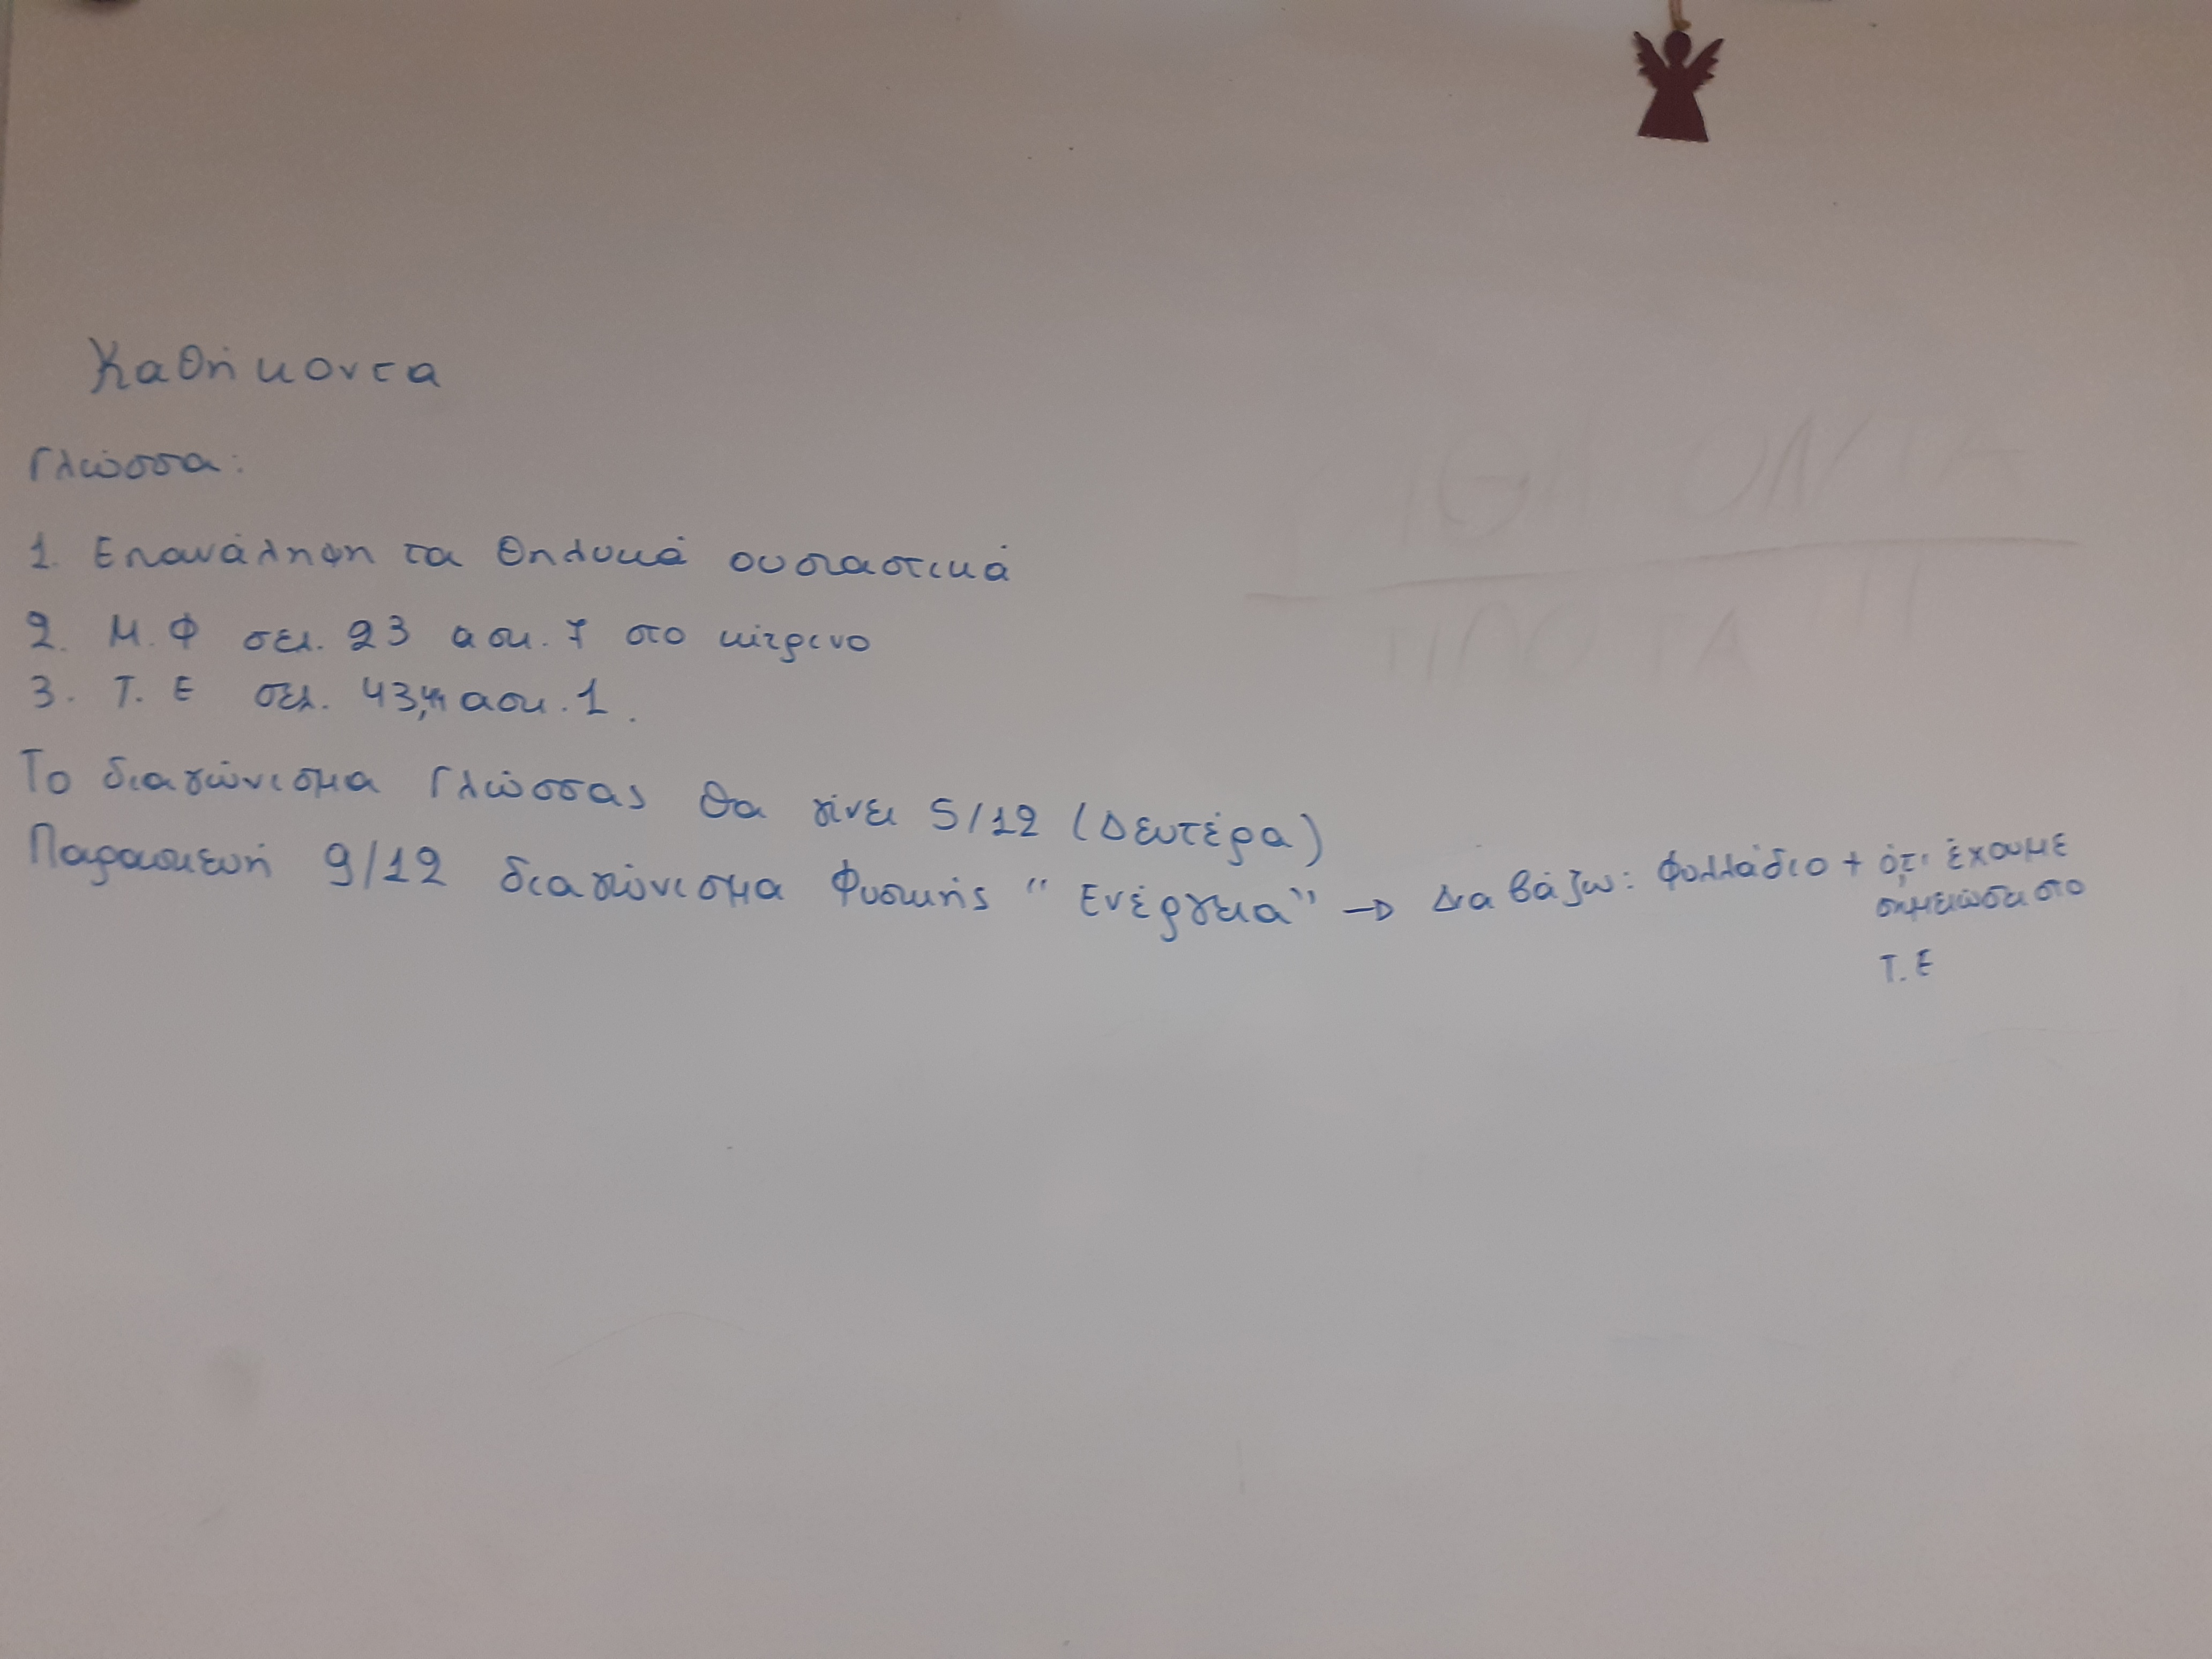 Καθήκοντα
Γλώσσα:
1. Επανάληψη τα Θηλυκά ουσιαστικά
2. Μ.Φ σελ. 23 ασκ. 7 στο κίτρινο
3. Τ. Ε σελ. 43,44 ασκ. 1.
Το διαγώνισμα Γλώσσας θα γίνει 5/12 (Δευτέρα)
Παρασκευή 9/12 διαγώνισμα Φυσικής "Ενέργεια" → Διαβάζω: Φυλλάδιο + ό,τι έχουμε
σημειώσει στο
Τ. Ε